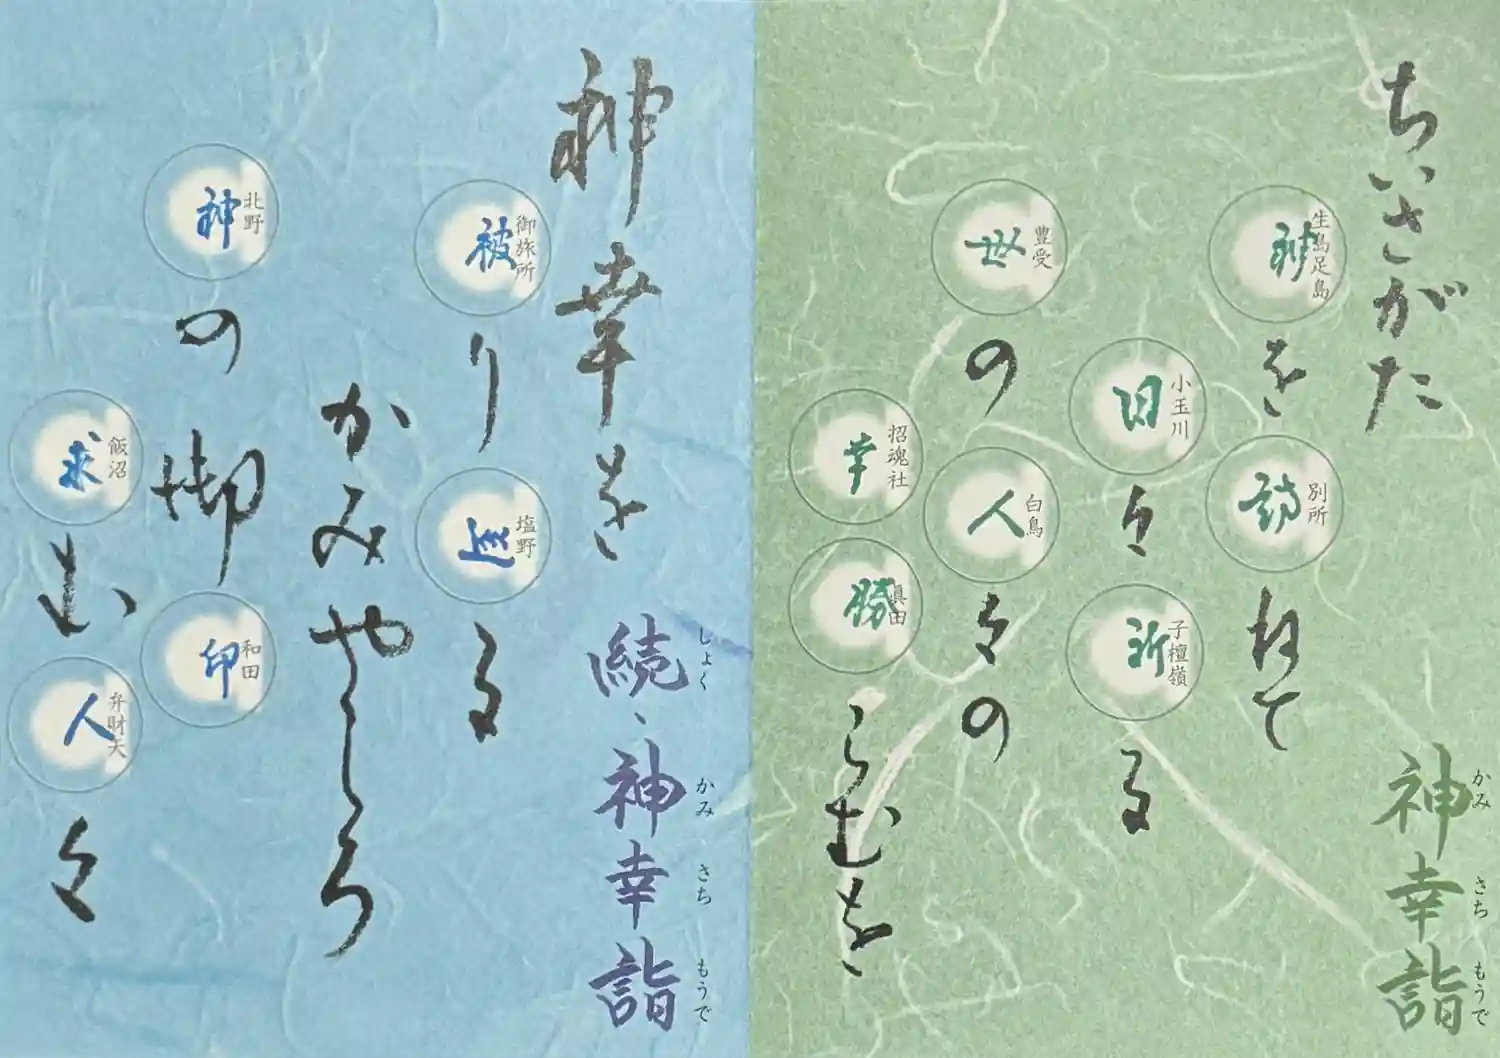 ちいさがた
神幸詣
かみ さち もうで
神を訪ねて
生島足島
別所
日々祈る
小玉川
子檀嶺
世の人々の
豊受
白鳥
幸勝らむを
招魂社
眞田
神幸を
続、神幸詣
しょく かみ さち もうで
被り る
御旅所
塩野
かみやしろ
神の御印
北野
和田
求む人々
飯沼
弁財天